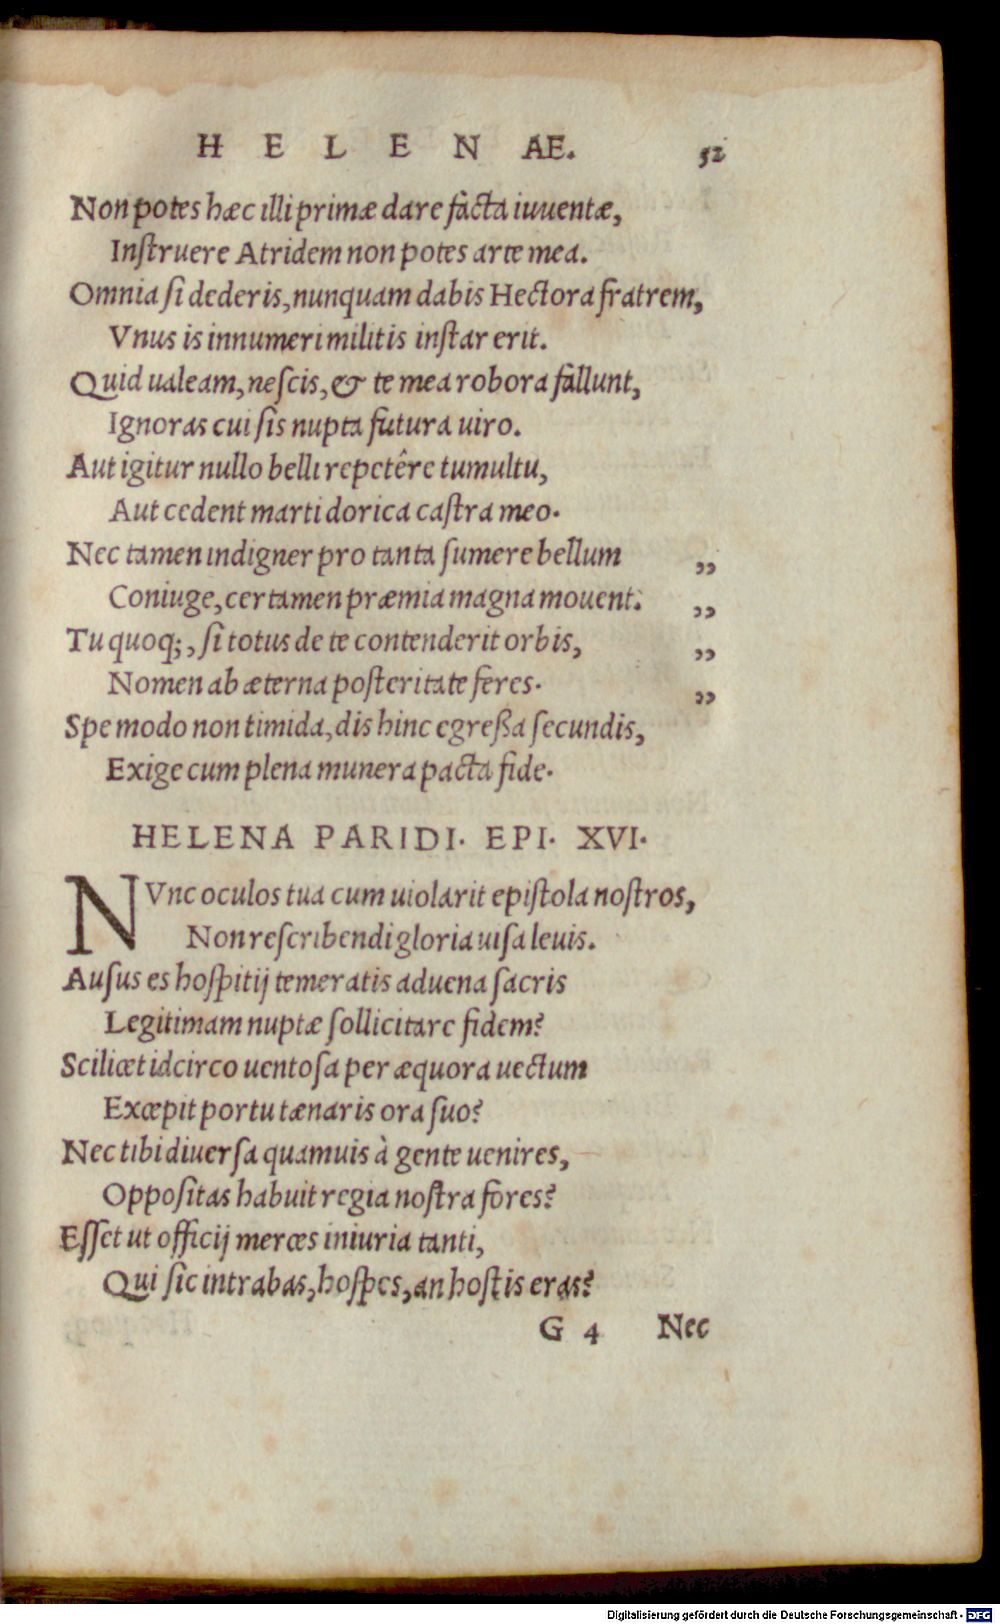 HELENAE. 52
Non potes hæc illi primæ dare facta iuuentæ,
Instruere Atridem non potes arte mea.
Omnia si dederis, nunquam dabis Hectora fratrem,
Vnus is innumeri militis instar erit.
Quid ualeam, nescis, & te mea robora fallunt,
Ignoras cui sis nupta futura uiro.
Aut igitur nullo belli repetêre tumultu,
Aut cedent marti dorica castra meo.
Nec tamen indigner pro tanta sumere bellum „
Coniuge, certamen præmia magna mouent. „
Tu quoq;, si totus de te contenderit orbis, „
Nomen ab æterna posteritate feres. „
Spe modo non timida, dis hinc egreßa secundis,
Exige cum plena munera pacta fide.
HELENA PARIDI. EPI. XVI.
NVnc oculos tua cum uiolarit epistola nostros,
Non rescribendi gloria uisa leuis.
Ausus es hospitij temeratis aduena sacris
Legitimam nuptæ sollicitare fidem?
Scilicet idcirco uentosa per æquora uectum
Excepit portu tænaris ora suo?
Nec tibi diuersa quamuis à gente uenires,
Oppositas habuit regia nostra fores?
Esset ut officij merces iniuria tanti,
Qui sic intrabas, hospes, an hostis eras?
G 4 Nec
Digitalisierung gefördert durch die Deutsche Forschungsgemeinschaft - DFG